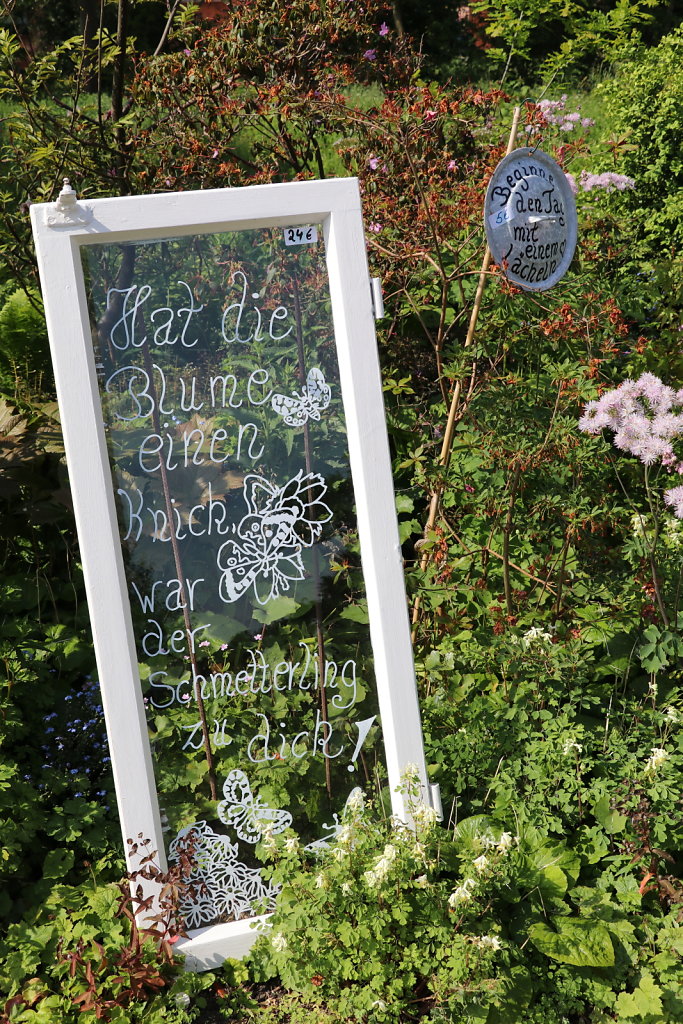 24€
Hat die
Blume
einen
Knick,
war
der
Schmetterling
zu dick!
Beginne
den Tag
mit
einem
Lächeln